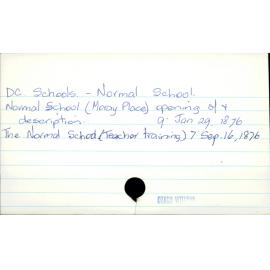 DC. Schools. - Normal School.
Normal School (Moray Place) opening of &
description. 9. Jan 29 1876
The Normal School (Teacher training) 7 Sep. 16, 1876